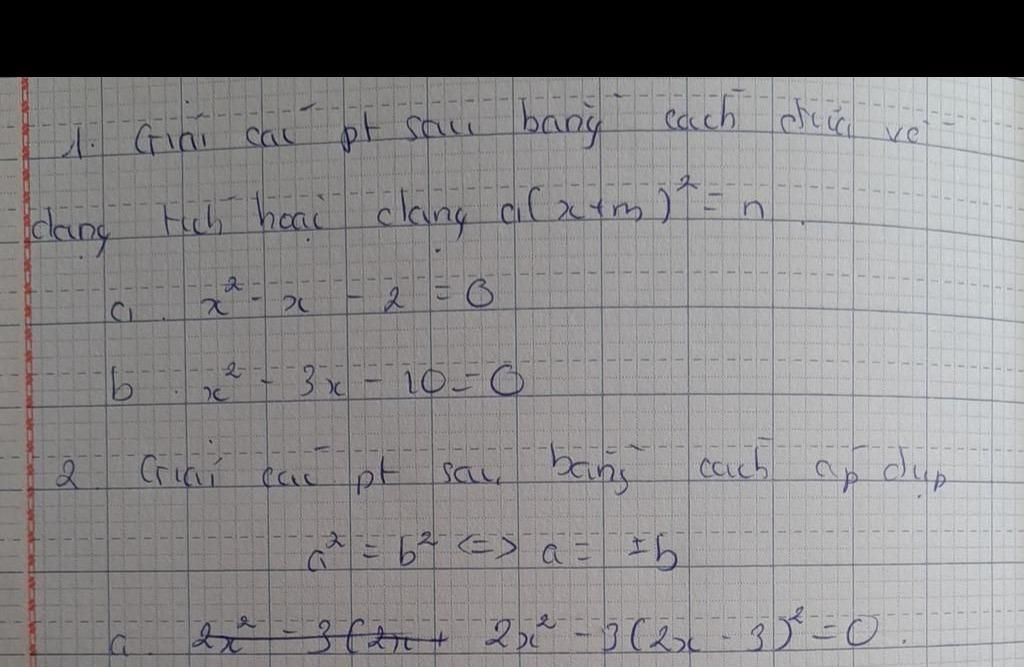 1. Giải các pt sau bằng cách đưa về
dạng tích hoặc dạng a(x+m)² = n.
a. x² - x - 2 = 0
b. x² - 3x - 10 = 0
2. Giải các pt sau bằng cách áp dụp
a² = b² <=> a = ±b
a. 2x² - 3(2x + 2x² - 3(2x - 3)² = 0.